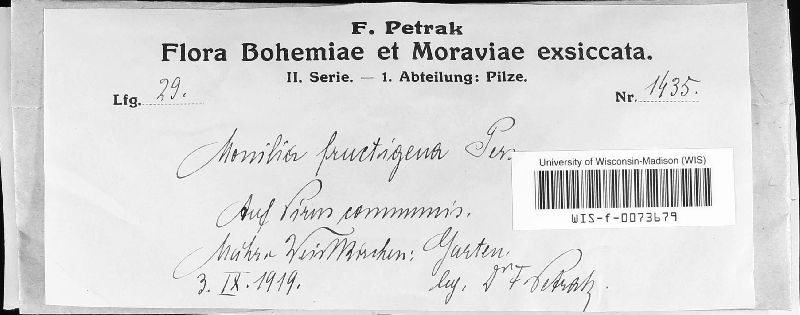 F. Petrak
Flora Bohemiae et Moraviae exsiccata.
II. Serie. — 1. Abteilung: Pilze.
Lfg. 29.
Nr. 1435.
Monilia fructigena Pers
University of Wisconsin-Madison (WIS)
WIS-f-0073679
Auf Pirus communis.
Mähr. Weisskirchen: Garten.
3. IX. 1919.
leg. Dr F Petrak.